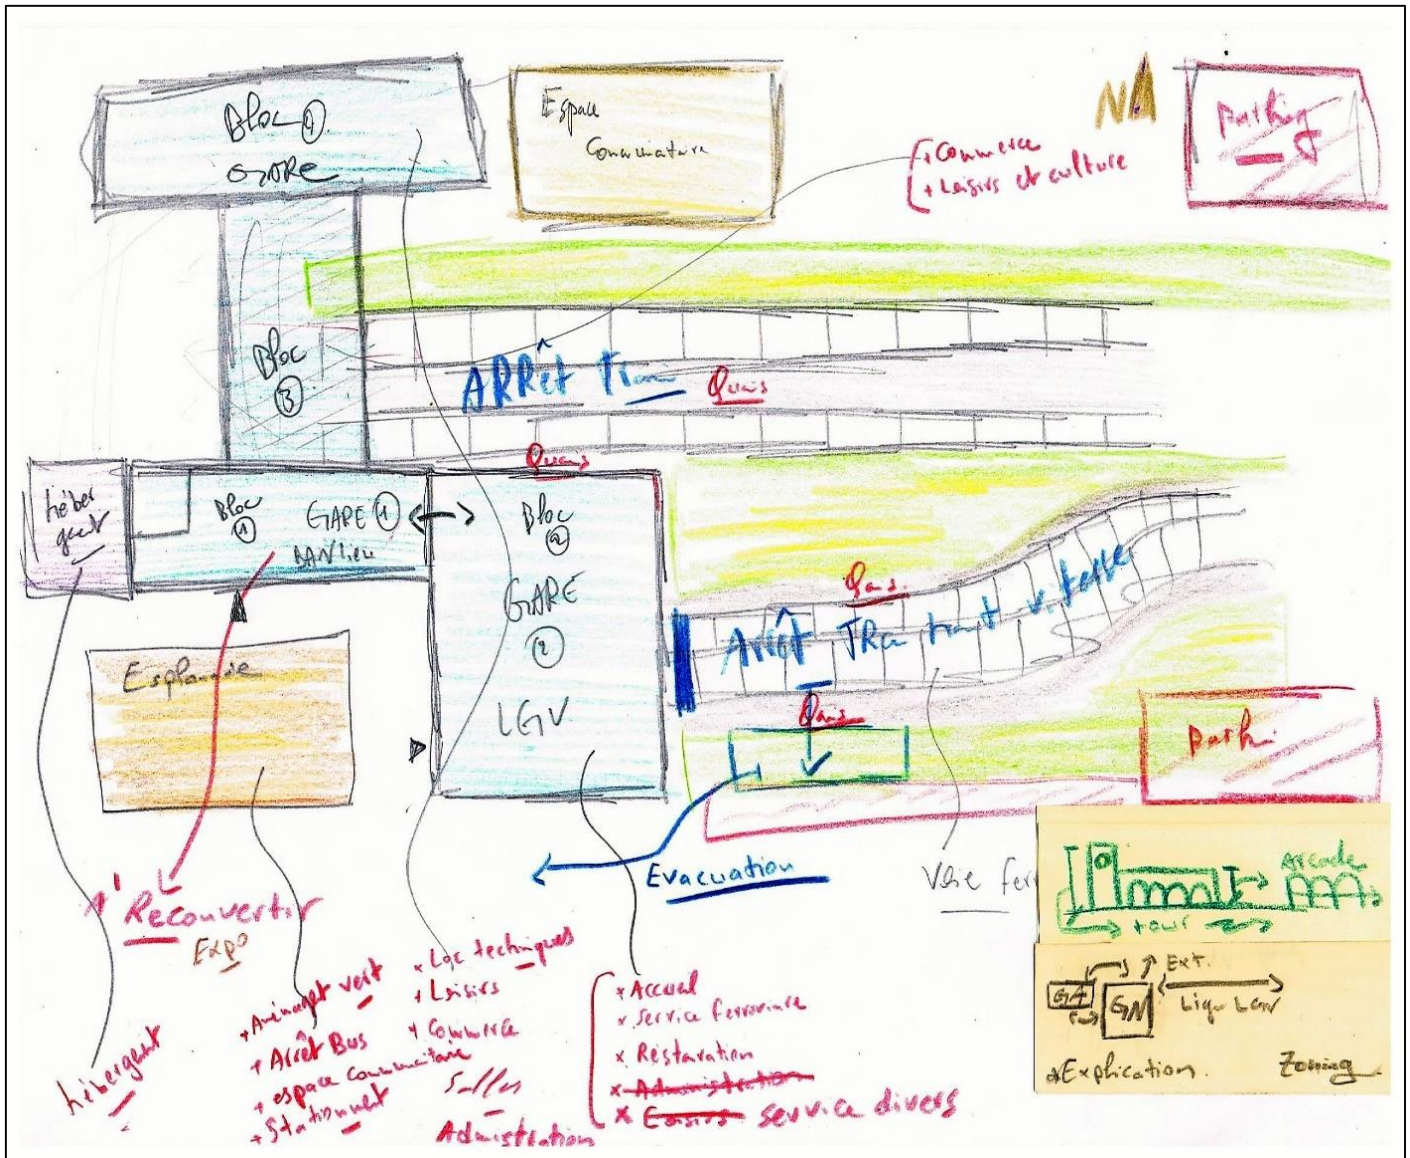 Bloc 4
GARE
Espace
Communautaire
N
Parking
+ Commerce
+ Loisirs et culture
Bloc
3
ARRêt Train
Quais
Quais
héber
geant
Bloc
1
GARE 1
BANlieu
Bloc
2
GARE
2
LGV
Quais
Arrêt TRain
Quais
Esplanade
Parki
Evacuation
Voie fer
Arcade
tour
Ext.
GA
GN
Lign LGV
*Explication.
Zoning
Reconvertir
Expo
hébergeant
+ Aménaget vert
+ Arrêt Bus
+ espace communitaire
+ Stationnent
* Loc techniques
+ Loisirs
+ Commerce
Salles
Admistration
* Accueil
* Service ferroviare
x Réstauration
x Administration
x Loisirs service divers